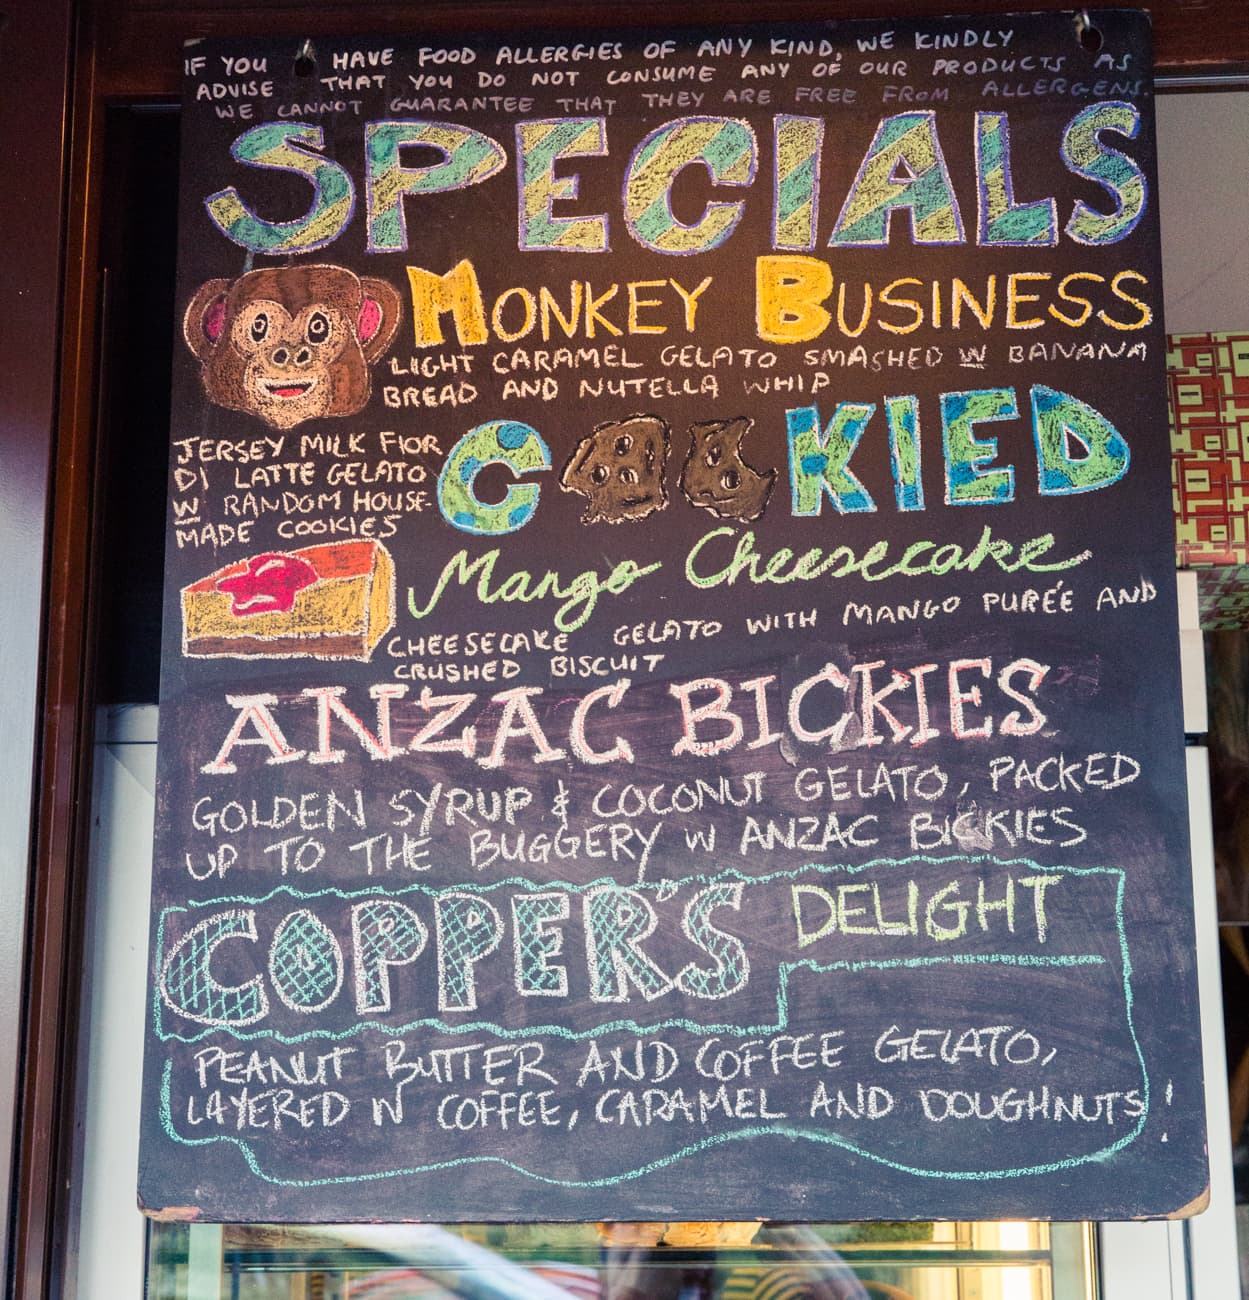 IF YOU HAVE FOOD ALLERGIES OF ANY KIND, WE KINDLY
ADVISE THAT YOU DO NOT CONSUME ANY OF OUR PRODUCTS AS
WE CANNOT GUARANTEE THAT THEY ARE FREE FROM ALLERGENS.
SPECIALS
MONKEY BUSINESS
LIGHT CARAMEL GELATO SMASHED W BANANA
BREAD AND NUTELLA WHIP
COOKIED
JERSEY MILK FIOR
DI LATTE GELATO
W RANDOM HOUSE-
MADE COOKIES
Mango Cheesecake
CHEESECAKE GELATO WITH MANGO PURÉE AND
CRUSHED BISCUIT
ANZAC BICKIES
GOLDEN SYRUP & COCONUT GELATO, PACKED
UP TO THE BUGGERY W ANZAC BICKIES
COPPER'S DELIGHT
PEANUT BUTTER AND COFFEE GELATO,
LAYERED W COFFEE, CARAMEL AND DOUGHNUTS!